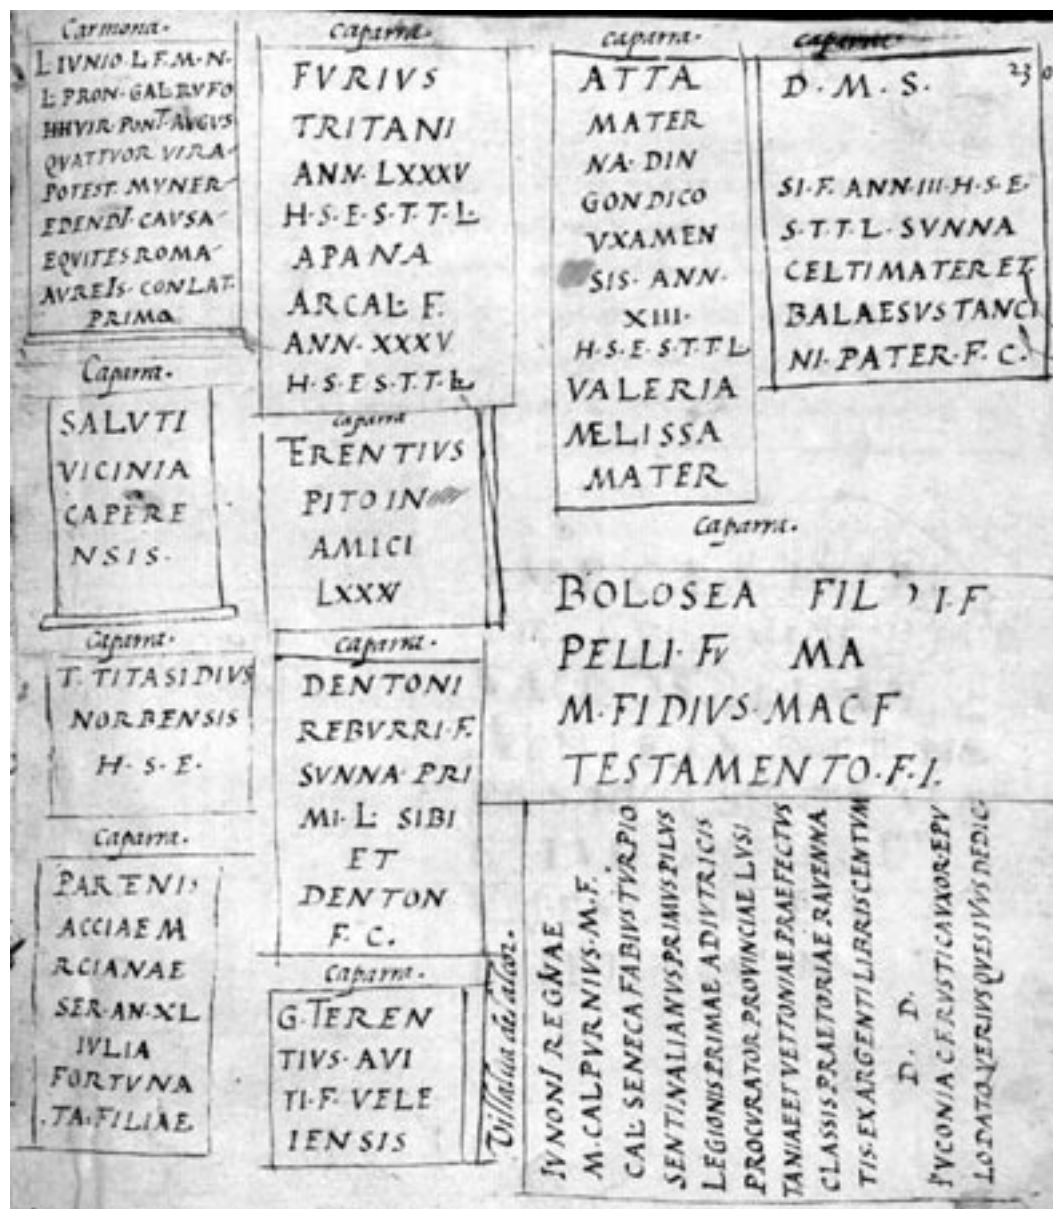 Carmona.
L IVNIO L F. M. N.
L. PRON. GAL RVFO
IIIIVIR. PONT. AVGVS
QVATTVOR VIRA
POTEST. MVNER
EDENDI. CAVSA
EQVITES ROMA
AVREIS. CONLAT.
PRIMO
Caparra.
SALVTI
VICINIA
CAPERE
NSIS.
Caparra.
T. TITASIDIVS
NORBENSIS
H. S. E.
Caparra.
PARTENIS
ACCIAE M
RCIANAE
SER. AN. XL
IVLIA
FORTVNA
TA. FILIAE
Caparra.
FVRIVS
TRITANI
ANN. LXXXV
H. S. E. S. T. T. L.
APANA
ARCAL. F.
ANN. XXXV
H. S. E S. T. T. L.
Caparra
TERENTIVS
PITO IN
AMICI
LXXXV
Caparra.
DENTONI
REBVRRI. F.
SVNNA. PRI
MI. L. SIBI
ET
DENTON
F. C.
Caparra.
G. TEREN
TIVS. AVI
TI. F. VELE
IENSIS
Caparra.
ATTA
MATER
NA. DIN
GONDICO
VXAMEN
SIS. ANN.
XIII.
H. S. E. S. T. T. L
VALERIA
MELISSA
MATER
Caparra
230
D. M. S.
SI. F. ANN. III. H. S. E.
S. T. T. L. SVNNA
CELTI MATER ET
BALAESVS TANCI
NI. PATER. F. C.
Caparra.
BOLOSEA FIL I. F
PELLI. FV MA
M. FIDIVS. MAC F
TESTAMENTO. F. I.
Villalua de alcor.
IVNONI REGNAE
M. CALPVRNIVS. M. F.
GAL. SENECA FABIVS TVRPIO
SENTINALIANVS PRIMVS PILVS
LEGIONIS PRIMAE ADIVTRICIS
PROCVRATOR PROVINCIAE LVSI
TANIAE ET VETTONIAE PRAEFECTVS
CLASSIS PRAETORIAE RAVENNA
TIS. EX ARGENTI LIBRIS CENTVM
D. D.
PVCONIA CERVSTICA VXOR. EPV
LO DATO. VERIVS QVESIVVS DEDIC.